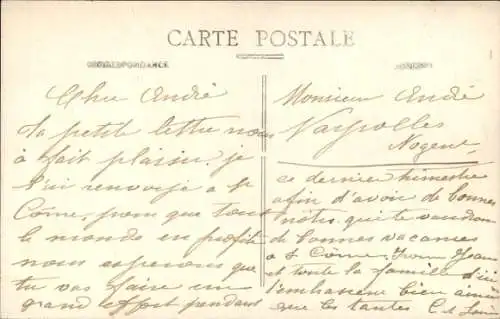 CARTE POSTALE
CORRESPONDANCE
ADRESSE
Cher André
Ta petite lettre nous
a fait plaisir. je
l'ai renvoyée a St
Come, pour que tout
le monde en profite
nous espérons que
tu vas faire un
grand effort pendant
Monsieur André
Nogent
ce dernier trimestre
afin d'avoir de bonnes
notes qui te vaudront
de bonnes vacances
a St Come, Jean
et toute la famille d'ici
t'embrassent bien ainsi
que tes tantes C et